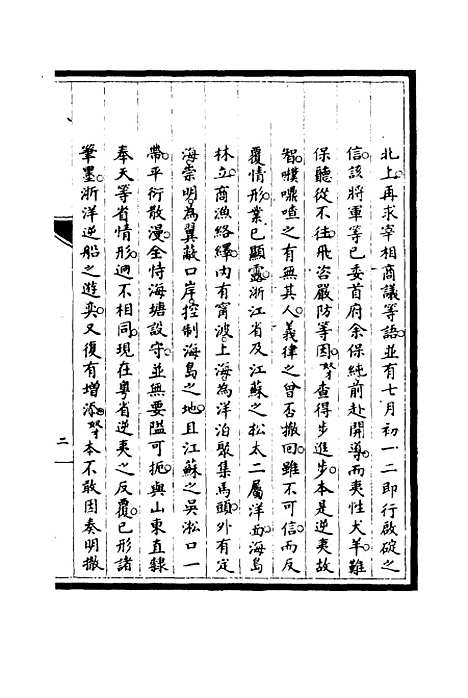 北上再求宰相商議等語並有七月初一二即行啟碇之
信該將軍等已委首府余保純前赴開導而夷性犬羊難
保聽從不往飛咨嚴防等因奴才查得步進步本是逆夷故
智噗㗶喳之有無其人義律之曾否撤回雖不可信而反
覆情形業已顯露浙江省及江蘇之松太二屬洋面海島
林立商漁絡繹內有甯波上海為洋泊聚集馬頭外有定
海崇明為翼蔽口岸控制海島之地且江蘇之吳淞口一
帶平衍散漫全恃海塘設守並無要隘可扼與山東直隸
奉天等省情形迥不相同現在粵省逆夷之反覆已形諸
筆墨浙洋逆船之遊奕又復有增添奴才本不敢因奏明撤
二